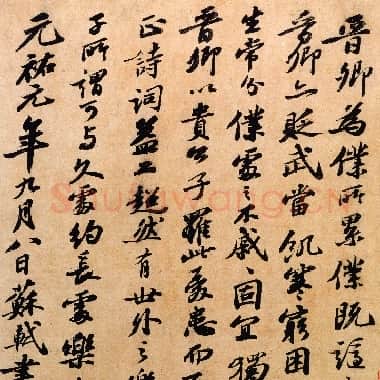 晉卿為僕所累僕既謫
晉卿亦貶武當飢寒窮困
生常分僕處之不戚戚固宜獨
晉卿以貴公子罹此憂患而不
正詩詞益工超然有世外之樂
子所謂可与久處約長處樂
元祐元年九月八日蘇軾書